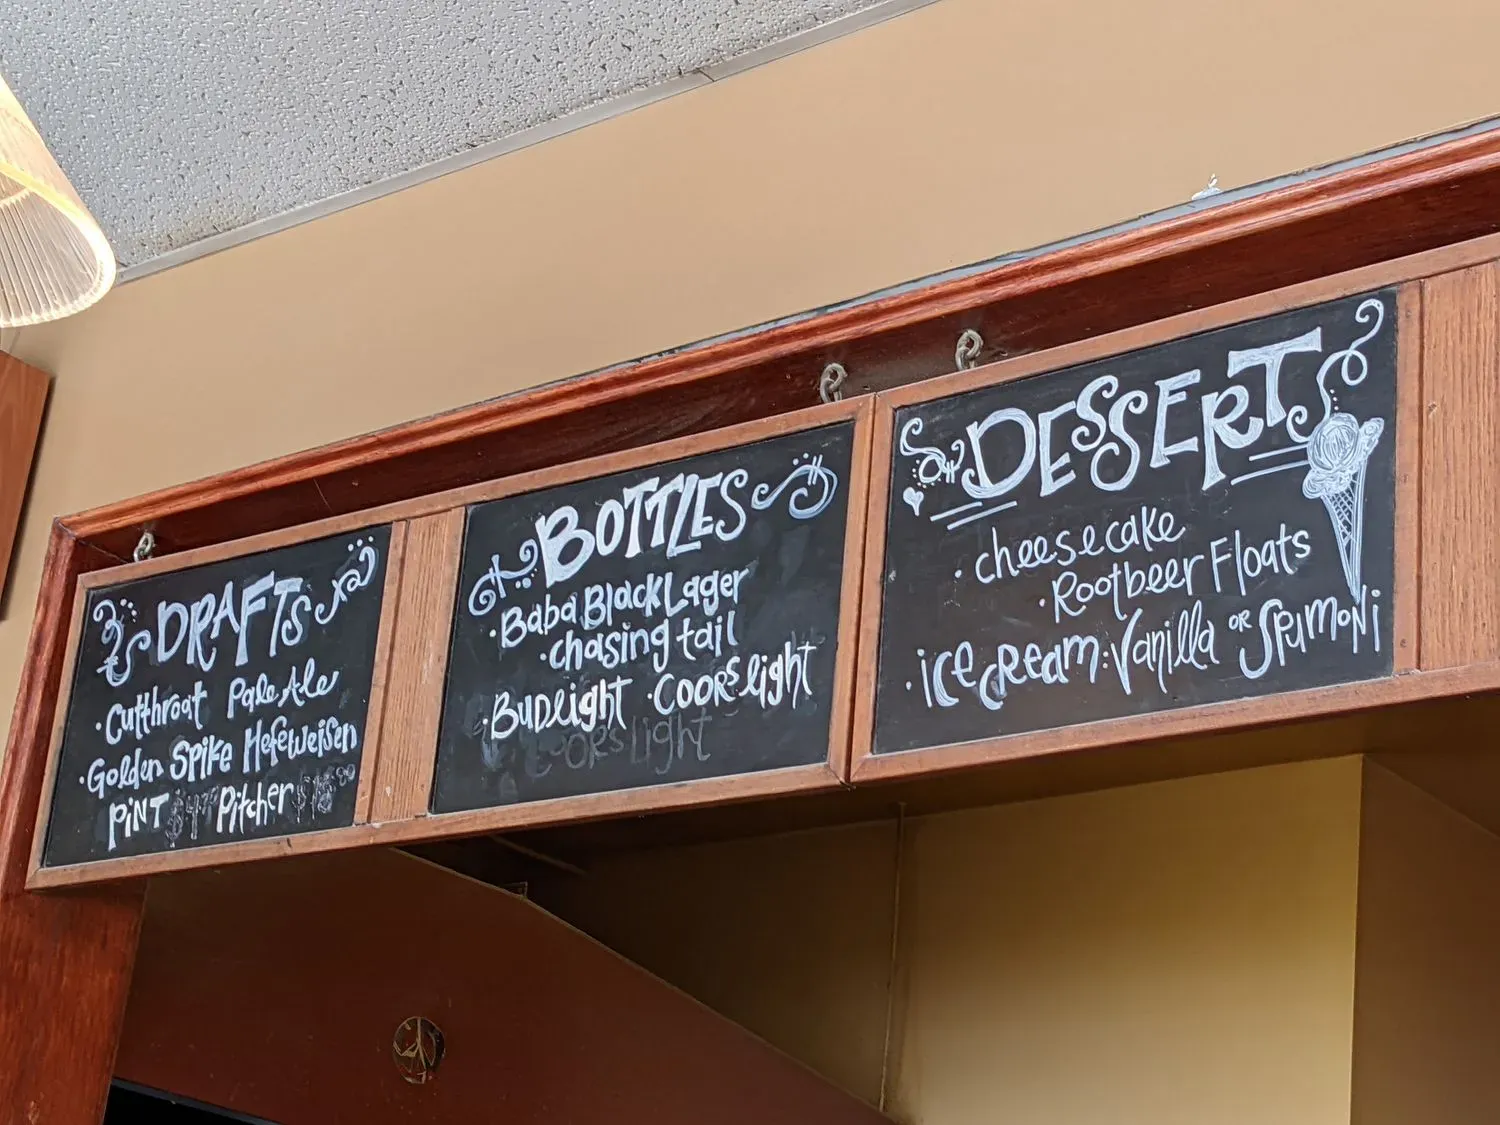 DRAFTS
· Cutthroat Pale Ale
· Golden Spike Hefeweisen
PINT Pitcher
BOTTLES
· Baba Black Lager
· chasing tail
· BudLight · COORS Light
COORS light
DESSERT
· cheesecake
· Rootbeer Floats
· ice cream: Vanilla OR SPUMONi